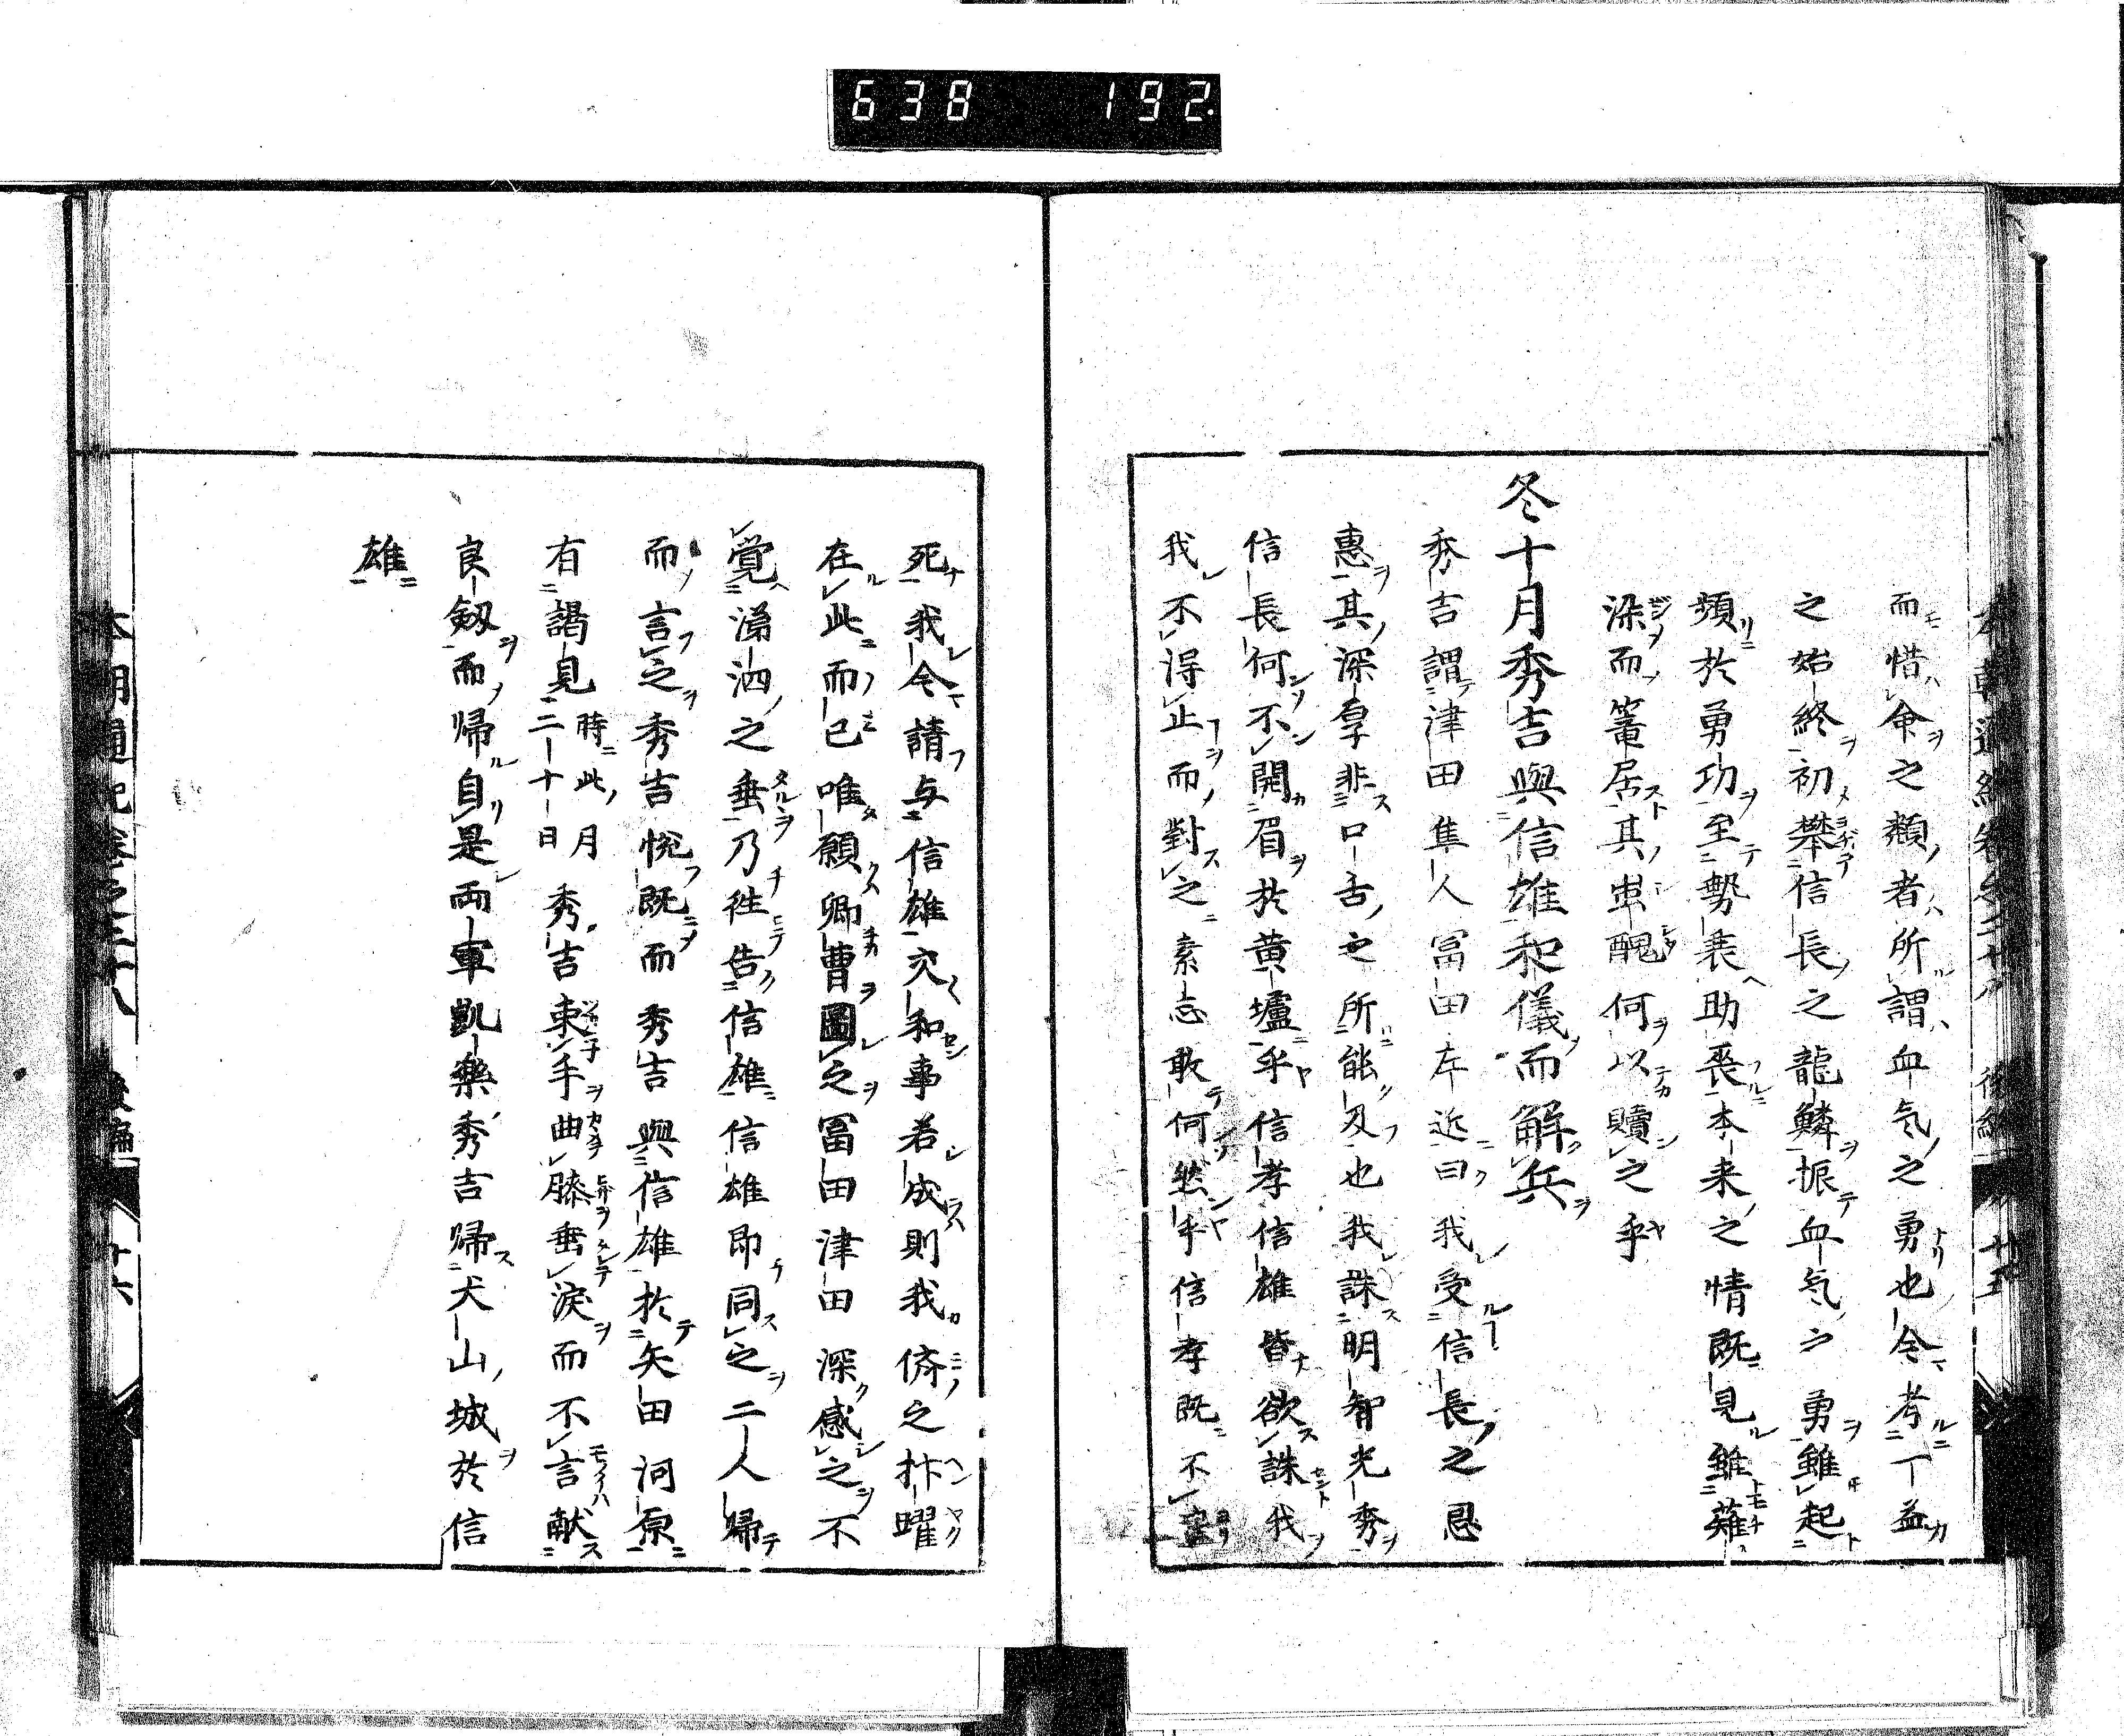 638 192.
而惜命之類者所謂血気之勇也今考丁益
之始終初攀信長之龍鱗振血気之勇雖起
頻於勇功至勢衰助喪本来之情既見雖薙
染而篭居其虫醜何以贖之乎
冬十月秀吉與信雄和儀而解兵
秀吉謂津田隼人冨田左近曰我受信長之恩
惠其深厚非口舌之所能及也我誅明智光秀
信長何不開眉於黄壚乎信孝信雄皆欲誅我
我不得止而對之素志敢何然乎信孝既不
死我今請与信雄欠和事若成則我儕之抃躍
在此而已唯願卿曹圖之冨田津田深感之不
覚涕泗之垂乃徃告信雄信雄即同之二人歸
而言之秀吉悦既而秀吉與信雄於矢田河原
有謁見時此月二十日秀吉束手曲膝垂涙而不言献
良劔而帰自是両軍凱樂秀吉歸犬山城於信
雄